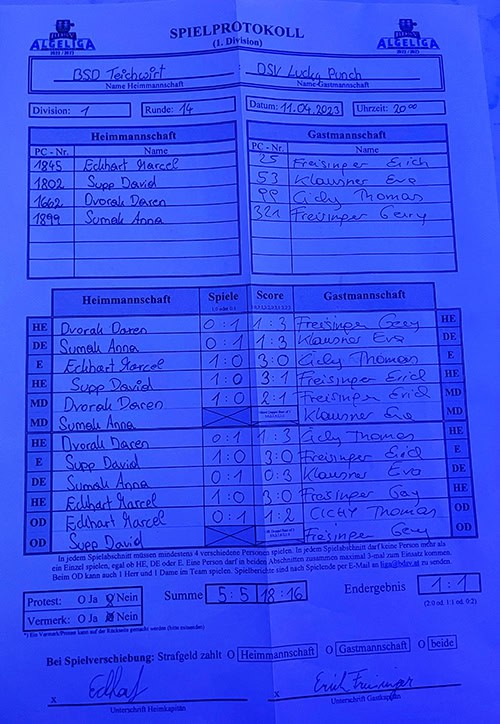 ALGELIGA
SPIELPROTOKOLL
(1. Division)
ALGELIGA
BSD Teichwirt : DSV Lucky Punch
Name Heimmannschaft Name-Gastmannschaft
Division: 1 Runde: 14 Datum: 11.04.2023 Uhrzeit: 20 00
Heimmannschaft Gastmannschaft
PC - Nr. Name PC - Nr. Name
1845 Eckhart Marcel 25 Freisinger Erich
1802 Supp David 53 Klausner Eva
1662 Dvorak Daren 99 Cichy Thomas
1899 Sumak Anna 321 Freisinger Gerry
Heimmannschaft Spiele Score Gastmannschaft
HE Dvorak Daren 0:1 1:3 Freisinger Gerry HE
DE Sumak Anna 0:1 1:3 Klausner Eva DE
E Eckhart Marcel 1:0 3:0 Cichy Thomas E
HE Supp David 1:0 3:1 Freisinger Erich HE
MD Dvorak Daren 1:0 2:1 Freisinger Erich MD
MD Sumak Anna Klausner Eva MD
HE Dvorak Daren 0:1 1:3 Cichy Thomas HE
E Supp David 1:0 3:0 Freisinger Erich E
DE Sumak Anna 0:1 0:3 Klausner Eva DE
HE Eckhart Marcel 1:0 3:0 Freisinger Gerry HE
OD Eckhart Marcel 0:1 1:2 CICHY Thomas OD
OD Supp David Freisinger Gerry OD
In jedem Spielabschnitt müssen mindestens 4 verschiedene Personen spielen. In jedem Spielabschnitt darf keine Person mehr als
ein Einzel spielen, egal ob HE, DE oder E. Eine Person darf in beiden Abschnitten zusammen maximal 3-mal zum Einsatz kommen.
Beim OD kann auch 1 Herr und 1 Dame im Team spielen. Spielberichte sind nach Spielende per E-Mail an liga@bdsv.at zu senden.
Protest: O Ja O Nein Summe 5:5 18:16 Endergebnis 1:1
Vermerk: O Ja O Nein (2:0 od. 1:1 od. 0:2)
*) Ein Vermerk/Protest kann auf der Rückseite gemacht werden (bitte ankreuzen)
Bei Spielverschiebung: Strafgeld zahlt O Heimmannschaft O Gastmannschaft O beide
x Eckhart x Erich Freisinger
Unterschrift Heimkapitän Unterschrift Gastkapitän